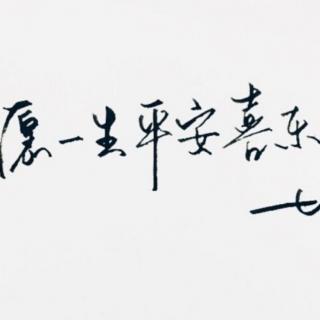 愿一生平安喜乐
七